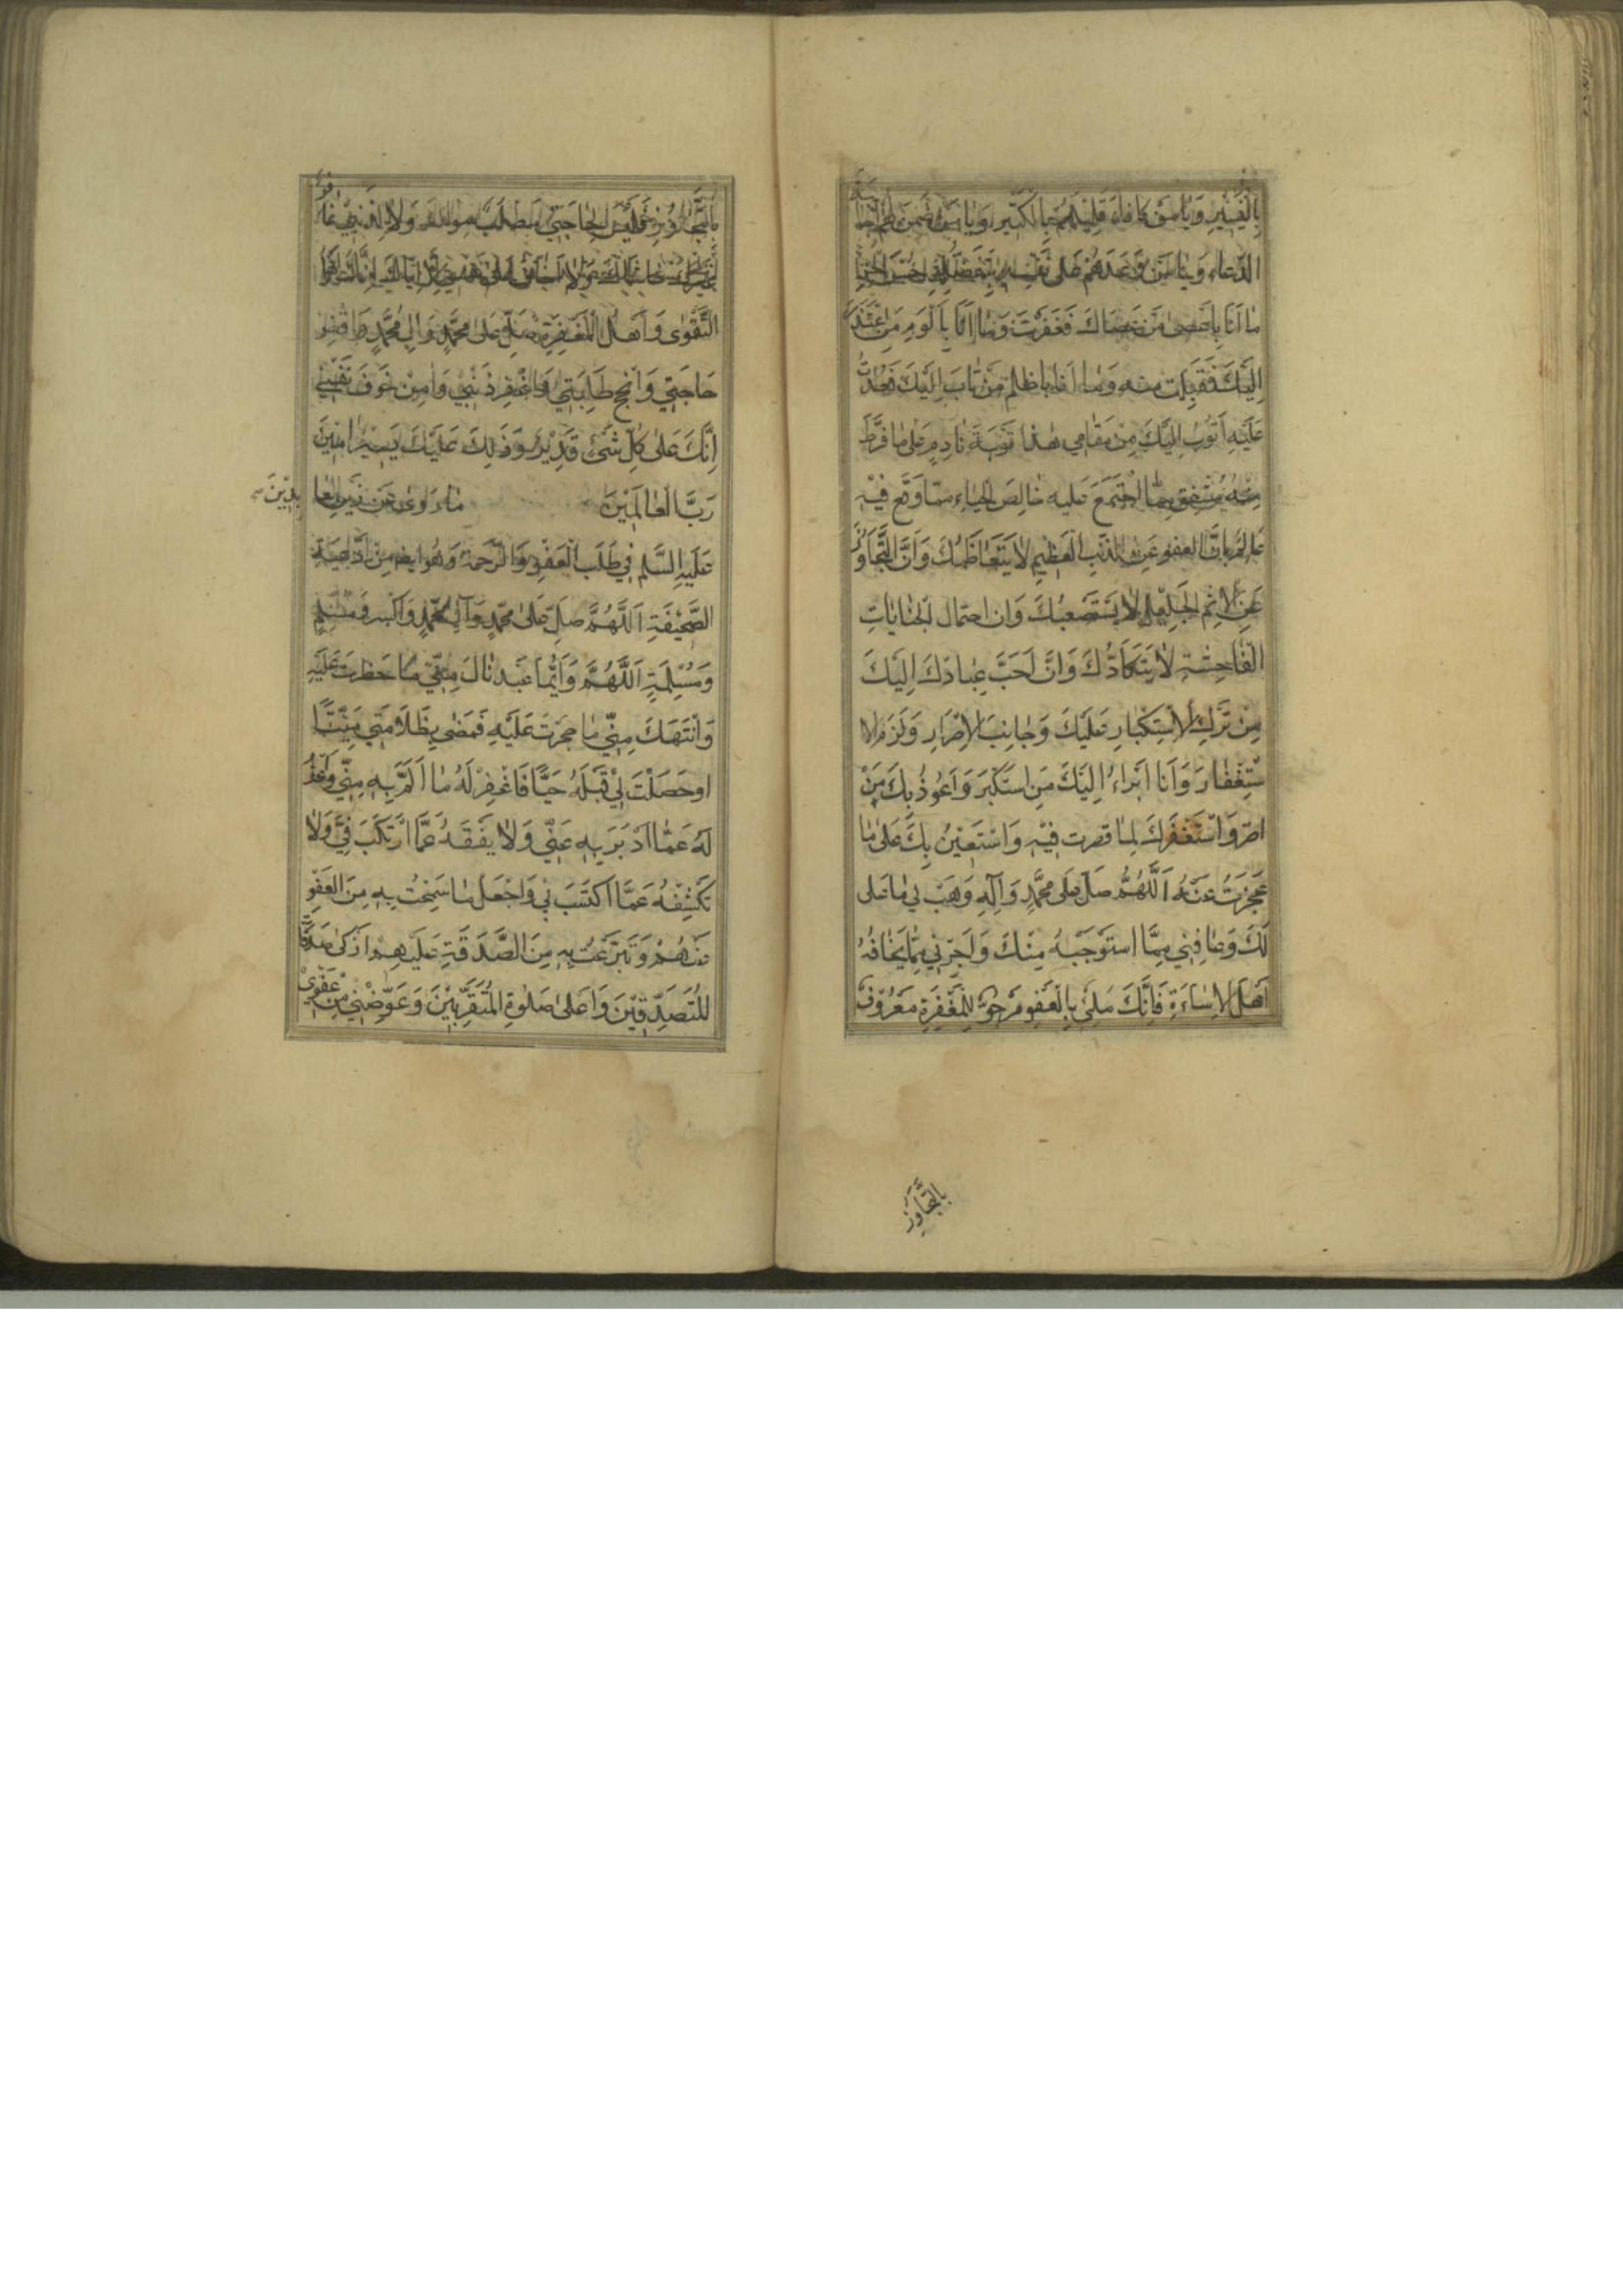 بِالْيَسِيرِ وَيَا مَنْ كَافَاءَ قَلِيلَهُمْ بِالْكَثِيرِ وَيَا مَنْ ضَمِنَ لَهُمْ إِجَابَةَ
الدُّعَاءِ وَيَا مَنْ وَعَدَهُمْ عَلَى نَفْسِهِ بِتَفَضُّلِهِ حُسْنَ الْجَزَاءِ
مَا أَنَا بِأَعْصَى مَنْ عَصَاكَ فَغَفَرْتَ وَمَا أَنَا بِأَلْوَمِ مَنِ اعْتَذَرَ
إِلَيْكَ فَقَبِلْتَ مِنْهُ وَمَا أَنَا بِأَظْلَمِ مَنْ تَابَ إِلَيْكَ فَعُدْتَ
عَلَيْهِ أَتُوبُ إِلَيْكَ مِنْ مَقَامِي هٰذَا تَوْبَةَ نَادِمٍ عَلَى مَا فَرَطَ
مِنْهُ مُشْفِقٍ مِمَّا اجْتَمَعَ عَلَيْهِ خَالِصِ الْحَيَاءِ مِمَّا وَقَعَ فِيْهِ
عَالِمٍ بِأَنَّ الْعَفْوَ عَنِ الذَّنْبِ الْعَظِيمِ لَا يَتَعَاظَمُكَ وَأَنَّ التَّجَاوُزَ
عَنِ الْإِثْمِ الْجَلِيلِ لَا يَسْتَصْعِبُكَ وَأَنَّ احْتِمَالَ الْجِنَايَاتِ
الْفَاحِشَةِ لَا يَتَكَادُّكَ وَأَنَّ أَحَبَّ عِبَادِكَ إِلَيْكَ
مَنْ تَرَكَ الْاسْتِكْبَارَ عَلَيْكَ وَجَانَبَ الْإِصْرَارَ وَلَزِمَ الْا
سْتِغْفَارَ وَأَنَا أَبْرَاءُ إِلَيْكَ مِنْ أَنْ أَسْتَكْبِرَ وَأَعُوذُ بِكَ مِنْ
أُصِرَّ وَأَسْتَغْفِرُكَ لِمَا قَصَرْتُ فِيْهِ وَأَسْتَعِيْنُ بِكَ عَلَى مَا
عَجَزْتُ عَنْهُ اَللّٰهُمَّ صَلِّ عَلَى مُحَمَّدٍ وَآلِهِ وَهَبْ لِي مَا عَلَيَّ
لَكَ وَعَافِنِي مِمَّا اسْتَوْجَبُهُ مِنْكَ وَأَجِرْنِي مِمَّا يَخَافُهُ
أَهْلُ الْإِسَاءَةِ فَإِنَّكَ مَلِئٌ بِالْعَفْوِ مَرْجُوٌّ لِلْمَغْفِرَةِ مَعْرُوْفٌ
بِالتَّجَاوُزِ
بِالتَّجَاوُزِ لَيْسَ لِحَاجَتِي مَطْلَبٌ سِوَاكَ وَلَا لِذَنْبِي غَافِرٌ
غَيْرُكَ حَاشَاكَ وَلَا أَخَافُ عَلَى نَفْسِي إِلَّا إِيَّاكَ إِنَّكَ أَهْلُ
التَّقْوٰى وَأَهْلُ الْمَغْفِرَةِ صَلِّ عَلَى مُحَمَّدٍ وَآلِ مُحَمَّدٍ وَاقْضِ
حَاجَتِي وَأَنْجِحْ طَلِبَتِي وَاغْفِرْ ذَنْبِي وَآمِنْ خَوْفَ نَفْسِي
إِنَّكَ عَلَى كُلِّ شَيْءٍ قَدِيْرٌ وَذٰلِكَ عَلَيْكَ يَسِيْرٌ آمِيْنَ
رَبَّ الْعَالَمِيْنَ مَا رُوِيَ عَنْ زَيْنِ الْعَا بِدِيْنَ
عَلَيْهِ السَّلٰم فِي طَلَبِ الْعَفْوِ وَالرَّحْمَةِ وَهُوَ أَيْضًا مِنْ أَدْعِيَةِ
الصَّحِيْفَةِ اَللّٰهُمَّ صَلِّ عَلَى مُحَمَّدٍ وَآلِ مُحَمَّدٍ
وَمُسْلِمَةٍ اَللّٰهُمَّ وَأَيُّمَا عَبْدٍ نَالَ مِنِّي مَا حَظَرْتَ عَلَيْهِ
وَانْتَهَكَ مِنِّي مَا حَجَرْتَ عَلَيْهِ فَمَضَى بِظُلَامَتِي مَيِّتًا
أَوْ حَصَلَتْ لِيْ قِبَلَهُ حَيًّا فَاغْفِرْ لَهُ مَا أَلَمَّ بِهِ مِنِّي وَاعْفُ
لَهُ عَمَّا أَدْبَرَ بِهِ عَنِّي وَلَا يَقِفْهُ عَمَّا ارْتَكَبَ فِيَّ وَلَا
تَكْشِفْهُ عَمَّا اكْتَسَبَ بِي وَاجْعَلْ مَا سَمَحْتُ بِهِ مِنَ الْعَفْوِ
عَنْهُمْ وَتَبَرَّعْتُ بِهِ مِنَ الصَّدَقَةِ عَلَيْهِمْ أَزْكٰى صَدَقَاتِ
الْمُتَصَدِّقِيْنَ وَأَعْلٰى صَلٰوةِ الْمُتَقَرِّبِيْنَ وَعَوِّضْنِي مِنْ عَفْوِيْ